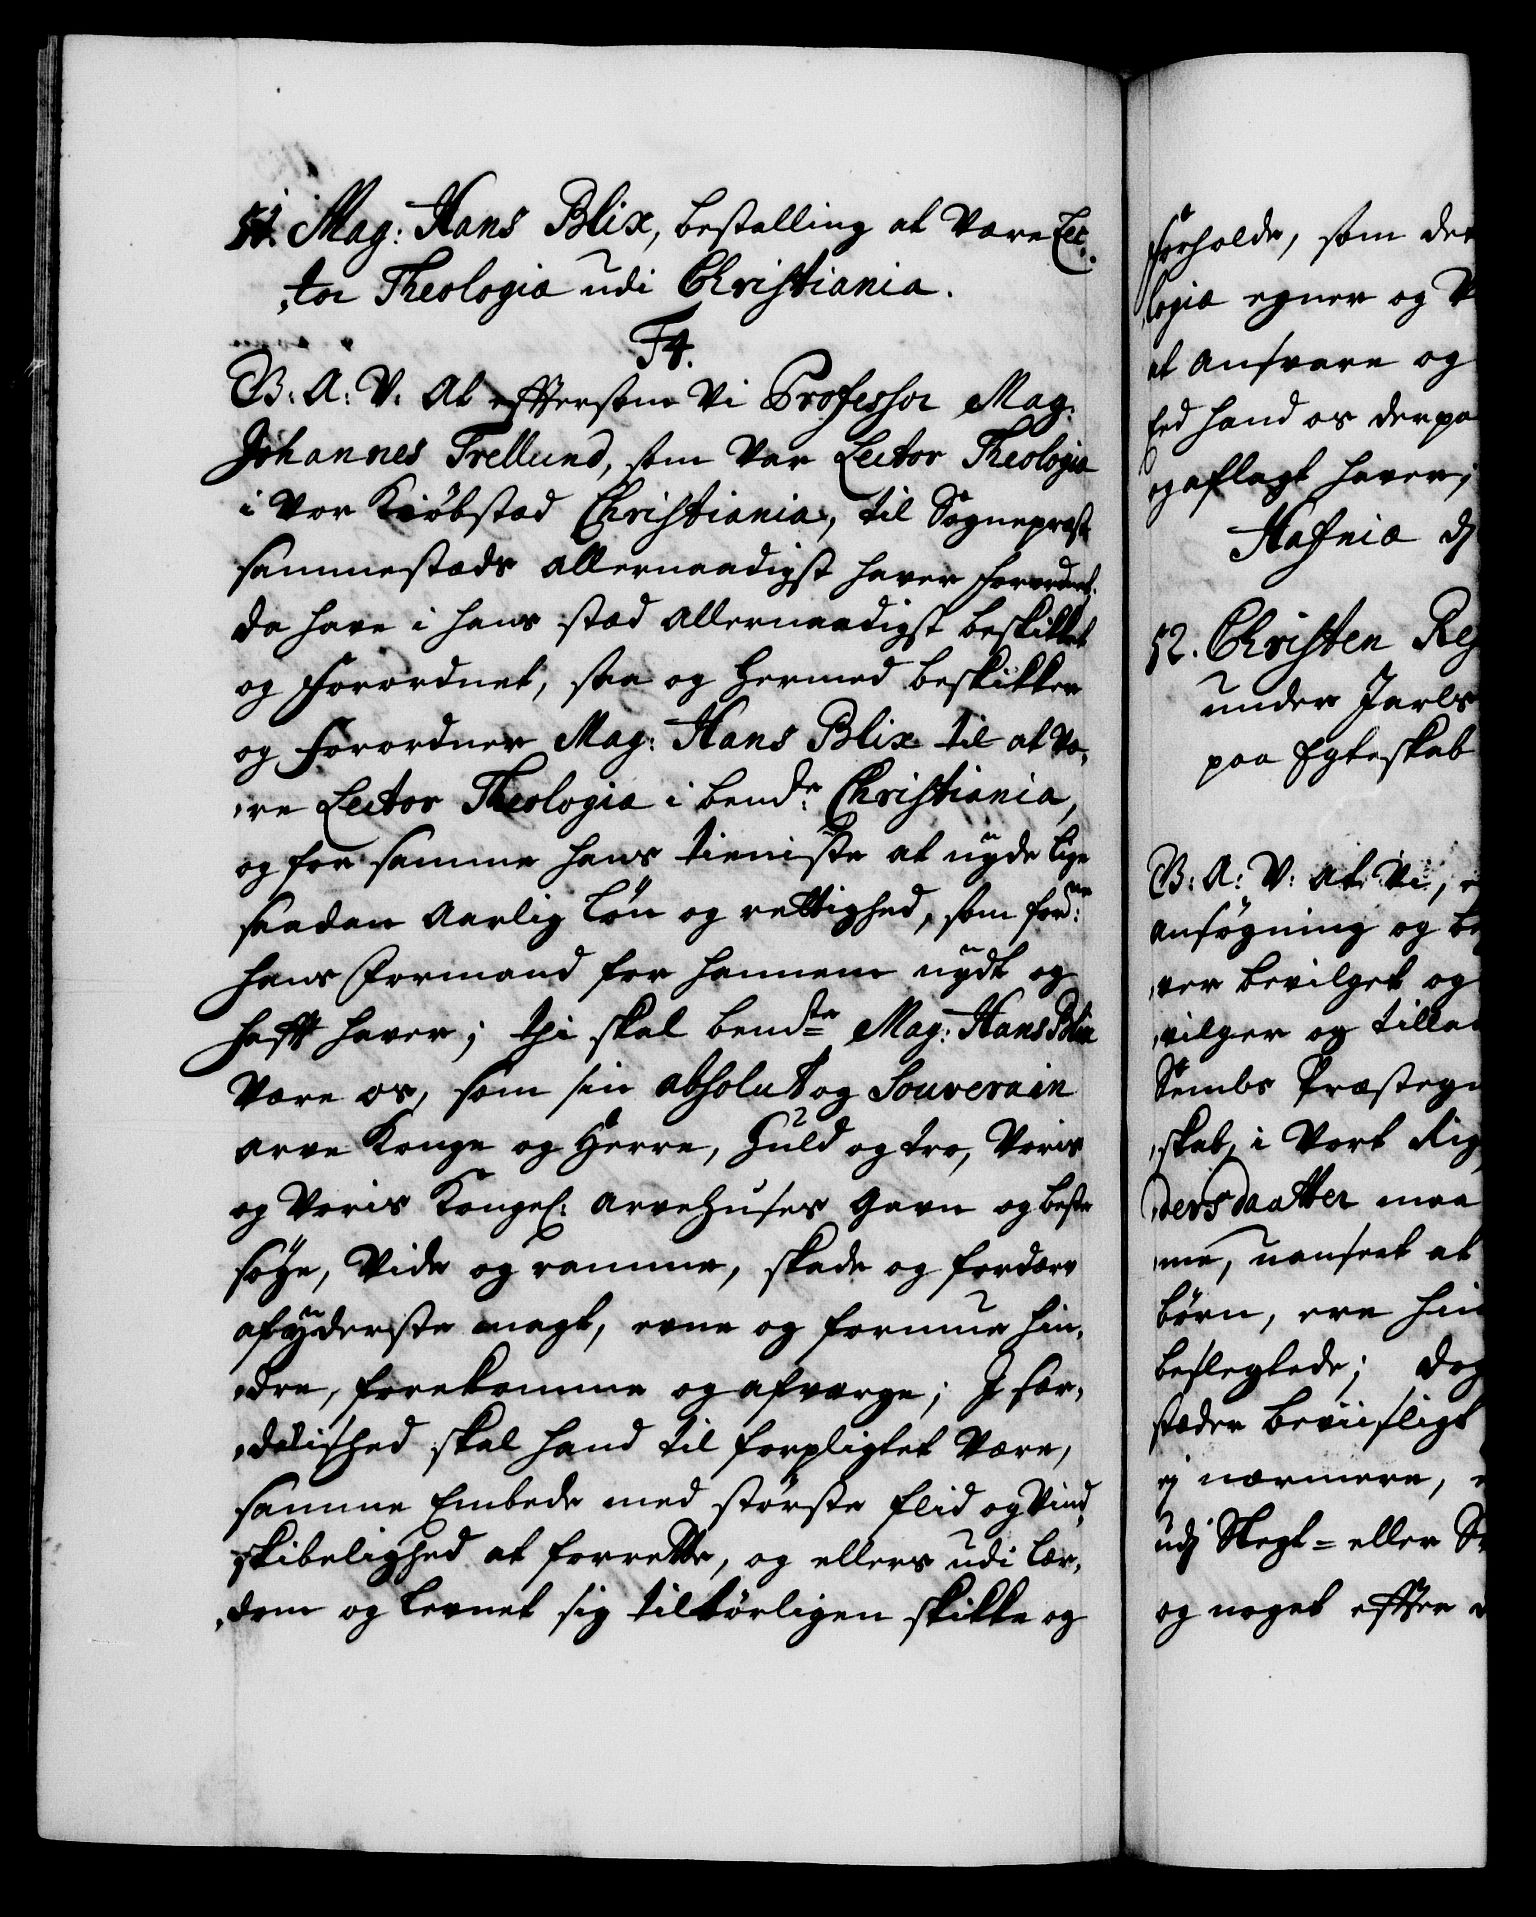 51. Mag: Hans Blix, bestalling at være Lec„
„tor Theologiæ udi Christiania.
F4.
B: A: V: At effter som Vi Professor Mag:
Johannes Trellund, som var Lector Theologiæ
i Vor Kiøbstad Christiania, til Sognepræst
sammestæds allernaadigst haver forordnet,
da have i hans stæd allernaadigst beskikket
og forordnet, saa og hermed beskikker
og forordner Mag: Hans Blix til at væ„
„re Lector Theologiæ i bemdte Christiania,
og for samme hans tieniste at nyde lige
saadan Aarlig løn og rettighed, som for:ne
hans formand for hannem nydt og
hafft haver; thi skal bemdte Mag: Hans Blix
være os, som sin absolut og Souverain
arve Konge og Herre, huld og tro, Voris
og Voris Kongel: arvehuses gavn og beste
søge, vide og ramme, skade og fordærv
af yderste magt, evne og formue hin„
„dre, forekomme og afverge; I sær„
„delished skal hand til forpligtet være,
samme Embede med største flid og vind„
skibelighed at forrette, og ellers udi lær„
„dom og levnet sig tilbørligen skikke og
forholde, som der
„logiæ egner og
at ansvare og
Eed hand os derpaa
og aflagt haver;
Hafniæ d
52. Christen
under Jarls
paa Egteskab
B: A: V: at Vi,
ansøgning og be
„ver bevilget og
„vilger og tillad
Sembs Præsteg
„skab, i Vort Rig
„dersdaatter maa
„me, uanseet at
børn, ere hin
beslegtede; dog
stæder beviisligt
ej nærmere,
udj Slegt= eller
og noget effter